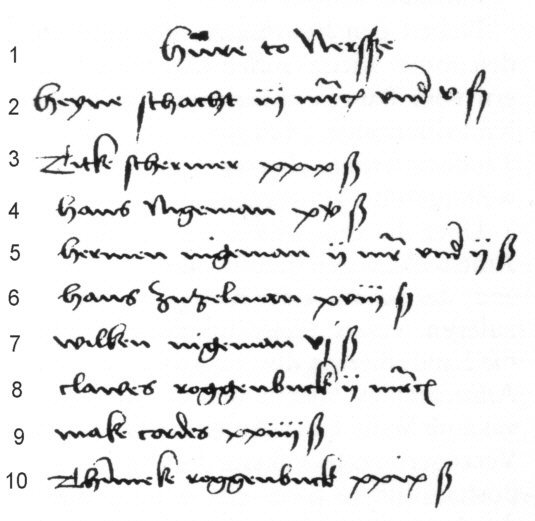 1 hure to Nersse
2 heyne schacht iij mrc vnd v ß
3 Titke schermer xxix ß
4 hans Nigeman xv ß
5 hermen nigeman ij mr vnd ij ß
6 hans zutzelman xviij ß
7 wilken nigeman vj ß
8 clawes roggenbuck ij mrc
9 make cordes xxiiij ß
10 Thimeke roggenbuck xxix ß